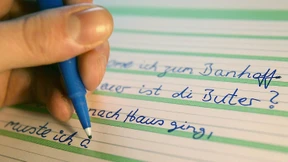 ich zum Banhoff
ist di Buter?
nach Haus ging,
muste ich d